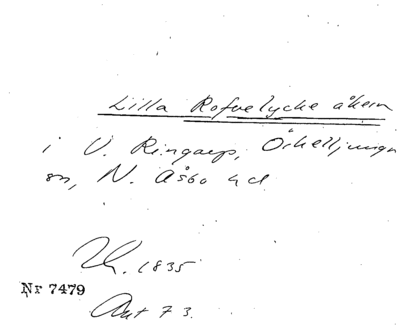 Lilla Rofvelycke åkern
i V. Ringarp, Örkelljunga
sn, N. Åsbo hd
1835
Nr 7479
Ant 73.